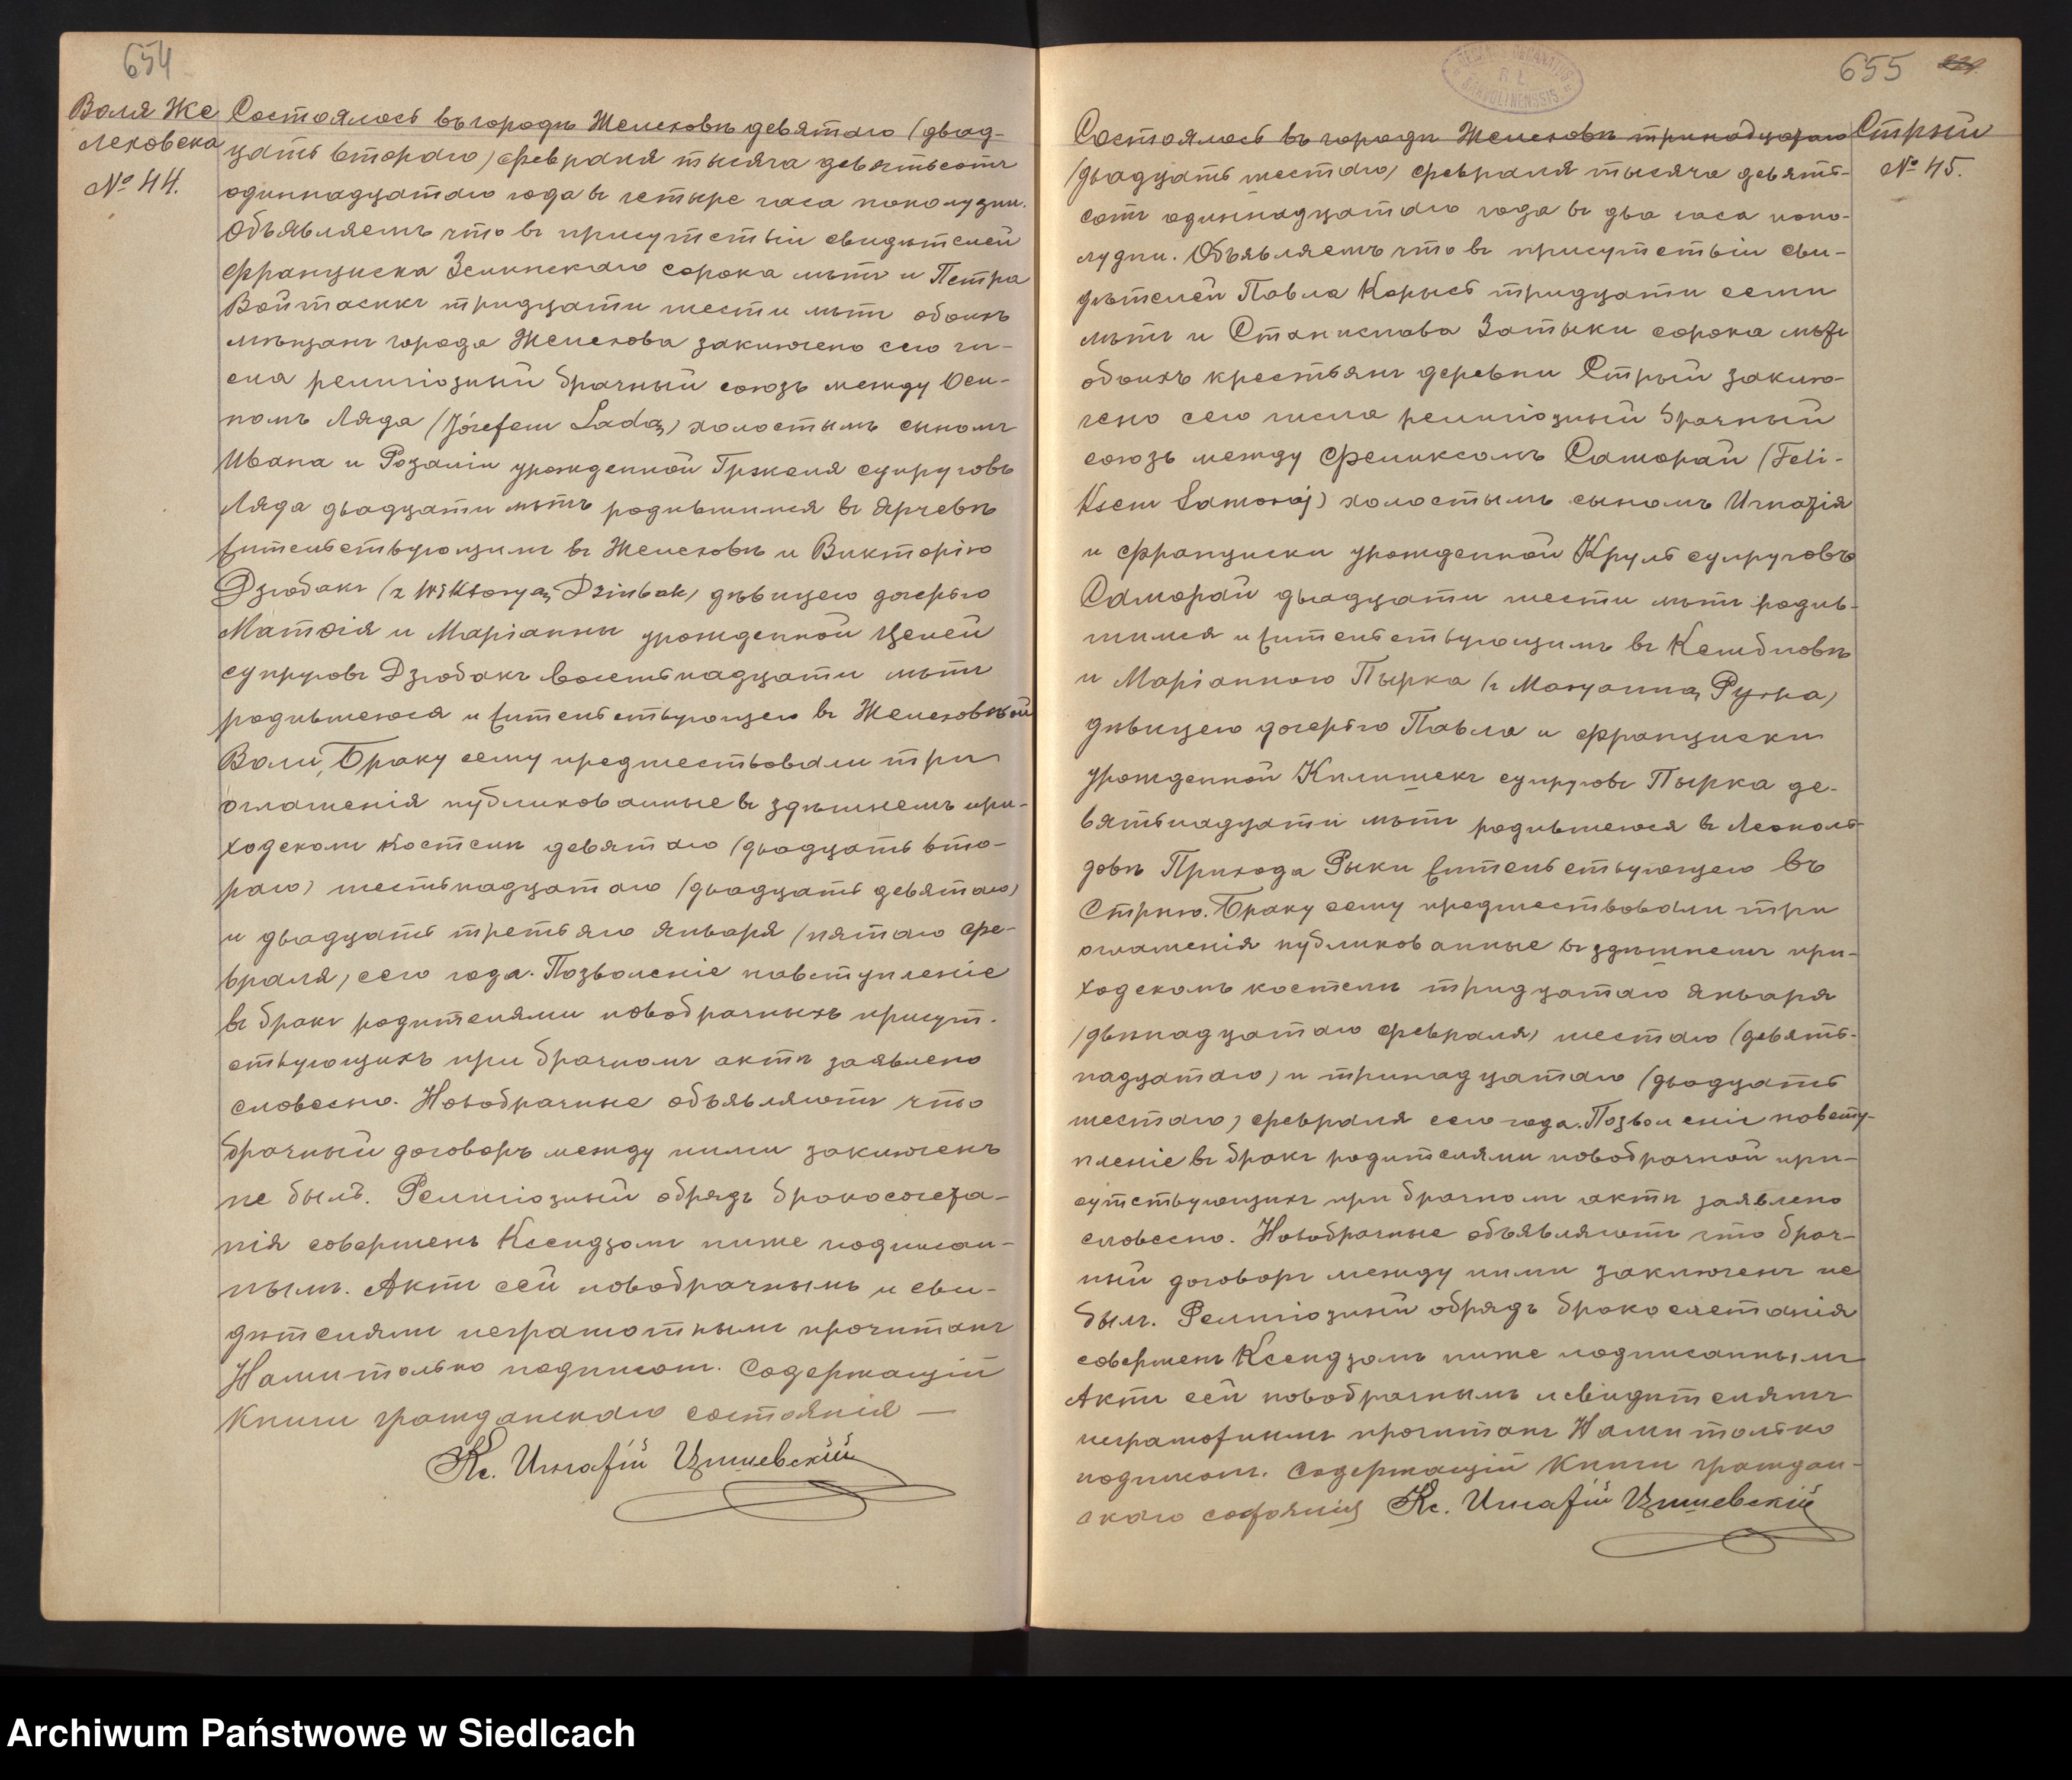 654
Воля Же
леховска
№ 44.
Состоялось въ городѣ Желеховѣ девятаго (двад-
цать втораго) февраля тысяча девятьсотъ
одиннадцатаго года въ четыре часа пополудни.
Объявляемъ что въ присутствіи свидѣтелей
Франциска Зелинскаго сорока лѣтъ и Петра
Войтасикъ тридцати шести лѣтъ обоихъ
мѣщанъ города Желехова заключено сего чи-
сла религіозный брачный союзъ между Оси-
помъ Ляда (Józefem Ladą) холостымъ сыномъ
Ивана и Розаліи урожденной Гржеля супруговъ
Ляда двадцати лѣтъ родившимся въ Ярчевѣ
жительствующимъ въ Желеховѣ и Викторіею
Дзюбакъ (z Wiktoryą Dziubak) дѣвицею дочерью
Матѳія и Маріанны урожденной Целей
супруговъ Дзюбакъ восемьнадцати лѣтъ
родившеюся и жительствующею въ Желеховской
Воли, Браку сему предшествовали три
оглашенія публикованные въ здѣшнемъ при-
ходскомъ костелѣ девятаго (двадцать вто-
раго) шестьнадцатаго (двадцать девятаго)
и двадцать третьяго Января (пятаго фе-
враля) сего года. Позволеніе повступленіе
въ бракъ родителями новобрачныхъ присут-
ствующихъ при брачномъ актѣ заявлено
словесно. Новобрачные объявляютъ что
брачный договоръ между ними заключенъ
не былъ. Религіозный обрядъ бракосочета-
нія совершенъ Ксендзомъ ниже подписан-
нымъ. Актъ сей новобрачнымъ и сви-
дѣтелями неграмотнымъ прочитанъ
Нами только подписанъ. Содержащій
Книги гражданскаго состоянія —
Кс. Игнатій
655
Состоялось въ городѣ Желеховѣ тринадцатаго
Стрый
№ 45.
(двадцать шестаго) февраля тысяча девять-
сотъ одиннадцатаго года въ два часа попо-
лудни. Объявляемъ что въ присутствіи сви-
дѣтелей Павла Корысь тридцати семи
лѣтъ и Станислава Затыки сорока лѣтъ
обоихъ крестьянъ деревни Стрый заклю-
чено сего числа религіозный брачный
союзъ между Феликсомъ Саморай (Feli-
ksem Samoraj) холостымъ сыномъ Игнатія
и Франциски урожденной Круль супруговъ
Саморай двадцати шести лѣтъ родив-
шимся и жительствующимъ въ Кембловѣ
и Маріанною Пырка (z Maryanną Pyrka)
дѣвицею дочерью Павла и Франциски
урожденной Килишекъ супруговъ Пырка де-
вятьнадцати лѣтъ родившеюся въ Леополь-
довѣ Прихода Рыки жительствующею въ
Стрыю. Браку сему предшествовали три
оглашенія публикованные въ здѣшнемъ при-
ходскомъ костелѣ тридцатаго Января
(двѣнадцатаго февраля) шестаго (девять-
надцатаго) и тринадцатаго (двадцать
шестаго) февраля сего года. Позволеніе повсту-
пленіе въ бракъ родителями новобрачной при-
сутствующихъ при брачномъ актѣ заявлено
словесно. Новобрачные объявляютъ что брач-
ный договоръ между ними заключенъ не
былъ. Религіозный обрядъ бракосочетанія
совершенъ Ксендзомъ ниже подписаннымъ
Актъ сей новобрачнымъ и свидѣтелямъ
неграмотнымъ прочитанъ Нами только
подписанъ. Содержащій Книги граждан-
скаго состоянія Кс. Игнатій
Archiwum Państwowe w Siedlcach